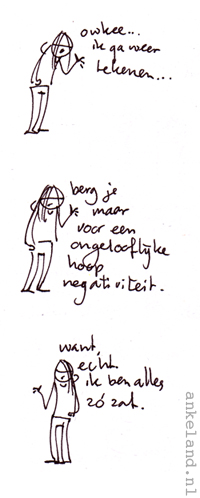 owkee...
ik ga weer
tekenen...
berg je
maar
voor een
ongelooflijke
hoop
negativiteit.
want,
echt.
ik ben alles
zó zat.
ankeland.nl